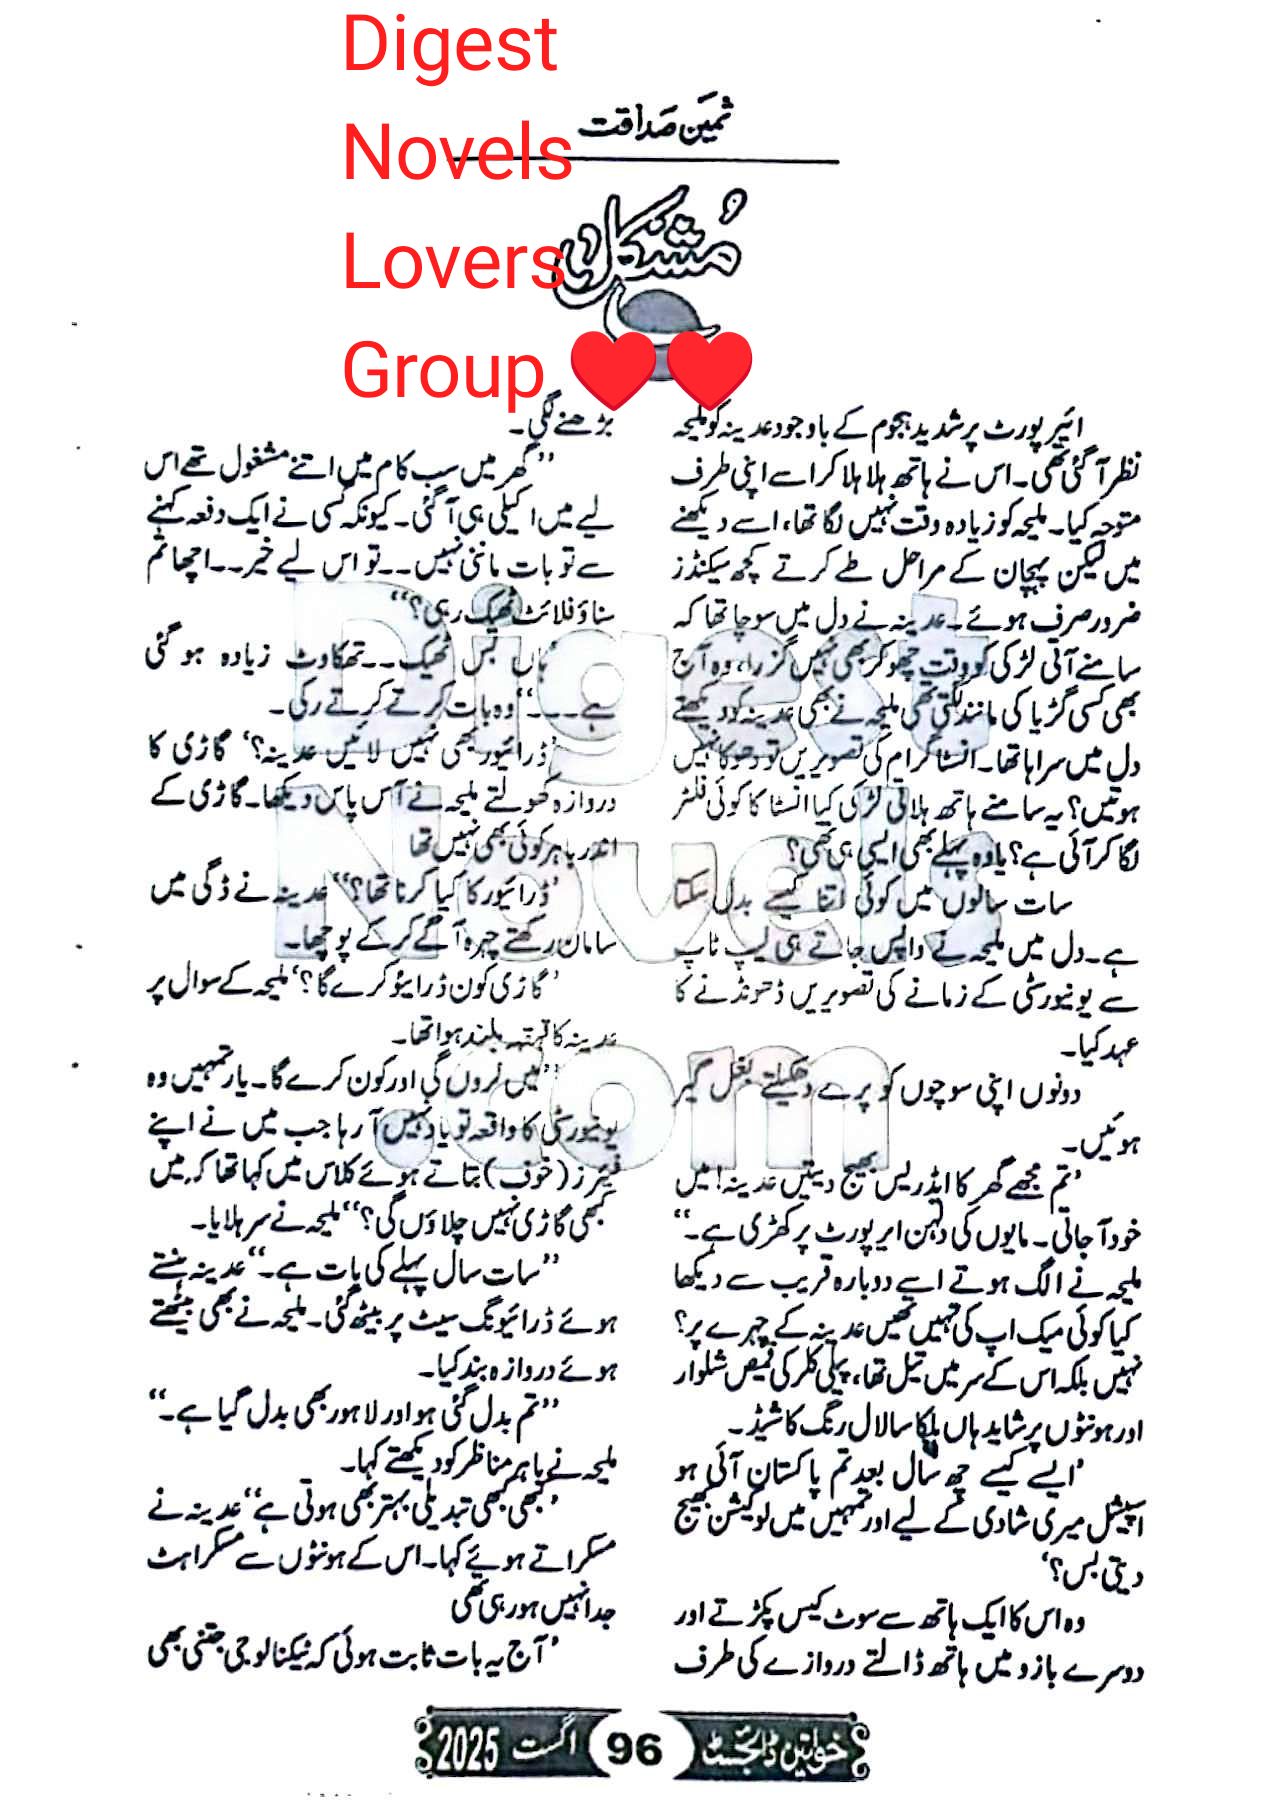 Digest
Novels
Lovers
Group ♥♥
ثمین صداقت
مُشکل
ائیر پورٹ پر شدید ہجوم کے باوجود عدینہ کو ملیحہ
نظر آ گئی تھی۔ اس نے ہاتھ ہلا ہلا کر اسے اپنی طرف
متوجہ کیا۔ ملیحہ کو زیادہ وقت نہیں لگا تھا، اسے دیکھنے
میں لیکن پہچان کے مراحل طے کرتے کچھ سیکنڈز
ضرور صرف ہوئے۔ عدینہ نے دل میں سوچا تھا کہ
سامنے آتی لڑکی کو وقت چھو کر بھی نہیں گزرا، وہ آج
بھی کسی گڑیا کی مانند لگتی تھی ملیحہ نے بھی عدینہ کو دیکھتے
دل میں سراہا تھا۔ انسٹا گرام کی تصویریں تو دھوکا نہیں
ہوتیں؟ یہ سامنے ہاتھ ہلاتی لڑکی کیا انسٹا کا کوئی فلٹر
لگا کر آئی ہے؟ یا وہ پہلے بھی ایسی ہی تھی؟
سات سالوں میں کوئی اتنا کیسے بدل سکتا
ہے۔ دل میں ملیحہ نے واپس جاتے ہی لیپ ٹاپ
سے یونیورسٹی کے زمانے کی تصویریں ڈھونڈنے کا
عہد کیا۔
دونوں اپنی سوچوں کو پرے دھکیلتے بغل گیر
ہوئیں۔
'تم مجھے گھر کا ایڈریس بھیج دیتیں عدینہ! میں
خود آ جاتی۔ مایوں کی دلہن ایر پورٹ پر کھڑی ہے۔"
ملیحہ نے الگ ہوتے اسے دوبارہ قریب سے دیکھا
کیا کوئی میک اپ کی تہیں تھیں عدینہ کے چہرے پر؟
نہیں بلکہ اس کے سر میں تیل تھا، پیلی کلر کی قمیص شلوار
اور ہونٹوں پر شاید ہاں ہلکا سا لال رنگ کا شیڈ۔
'ایسے کیسے چھ سال بعد تم پاکستان آئی ہو
اسپیشل میری شادی کے لیے اور تمہیں میں لوکیشن بھیج
دیتی بس؟'
وہ اس کا ایک ہاتھ سے سوٹ کیس پکڑتے اور
دوسرے بازو میں ہاتھ ڈالتے دروازے کی طرف
بڑھنے لگی۔
"گھر میں سب کام میں اتنے مشغول تھے اس
لیے میں اکیلی ہی آ گئی۔ کیونکہ کسی نے ایک دفعہ کہنے
سے تو بات ماننی نہیں۔۔ تو اس لیے خیر۔۔ اچھا تم
سناؤ فلائٹ ٹھیک رہی؟"
'ہاں بس ٹھیک۔۔ تھکاوٹ زیادہ ہو گئی
ہے۔۔۔" وہ بات کرتے کرتے رکی۔
'ڈرائیور بھی نہیں لائیں عدینہ؟' گاڑی کا
دروازہ کھولتے ملیحہ نے آس پاس دیکھا۔ گاڑی کے
اندر باہر کوئی بھی نہیں تھا
'ڈرائیور کا کیا کرنا تھا؟" عدینہ نے ڈگی میں
سامان رکھتے چہرہ آگے کر کے پوچھا۔
'گاڑی کون ڈرائیو کرے گا؟' ملیحہ کے سوال پر
عدینہ کا قہقہہ بلند ہوا تھا۔
"میں کروں گی اور کون کرے گا۔ یار تمہیں وہ
یونیورسٹی کا واقعہ تو یاد نہیں آ رہا جب میں نے اپنے
فیئرز (خوف) بتاتے ہوئے کلاس میں کہا تھا کہ میں
کبھی گاڑی نہیں چلاؤں گی؟" ملیحہ نے سر ہلایا۔
"سات سال پہلے کی بات ہے۔" عدینہ ہنستے
ہوئے ڈرائیونگ سیٹ پر بیٹھ گئی۔ ملیحہ نے بھی بیٹھتے
ہوئے دروازہ بند کیا۔
"تم بدل گئی ہو اور لاہور بھی بدل گیا ہے۔"
ملیحہ نے باہر مناظر کو دیکھتے کہا۔
'کبھی کبھی تبدیلی بہتر بھی ہوتی ہے" عدینہ نے
مسکراتے ہوئے کہا۔ اس کے ہونٹوں سے مسکراہٹ
جدا نہیں ہو رہی تھی
'آج یہ بات ثابت ہوئی کہ ٹیکنالوجی جتنی بھی
Digest
Novels
.com
خواتین ڈائجسٹ 96 اگست 2025